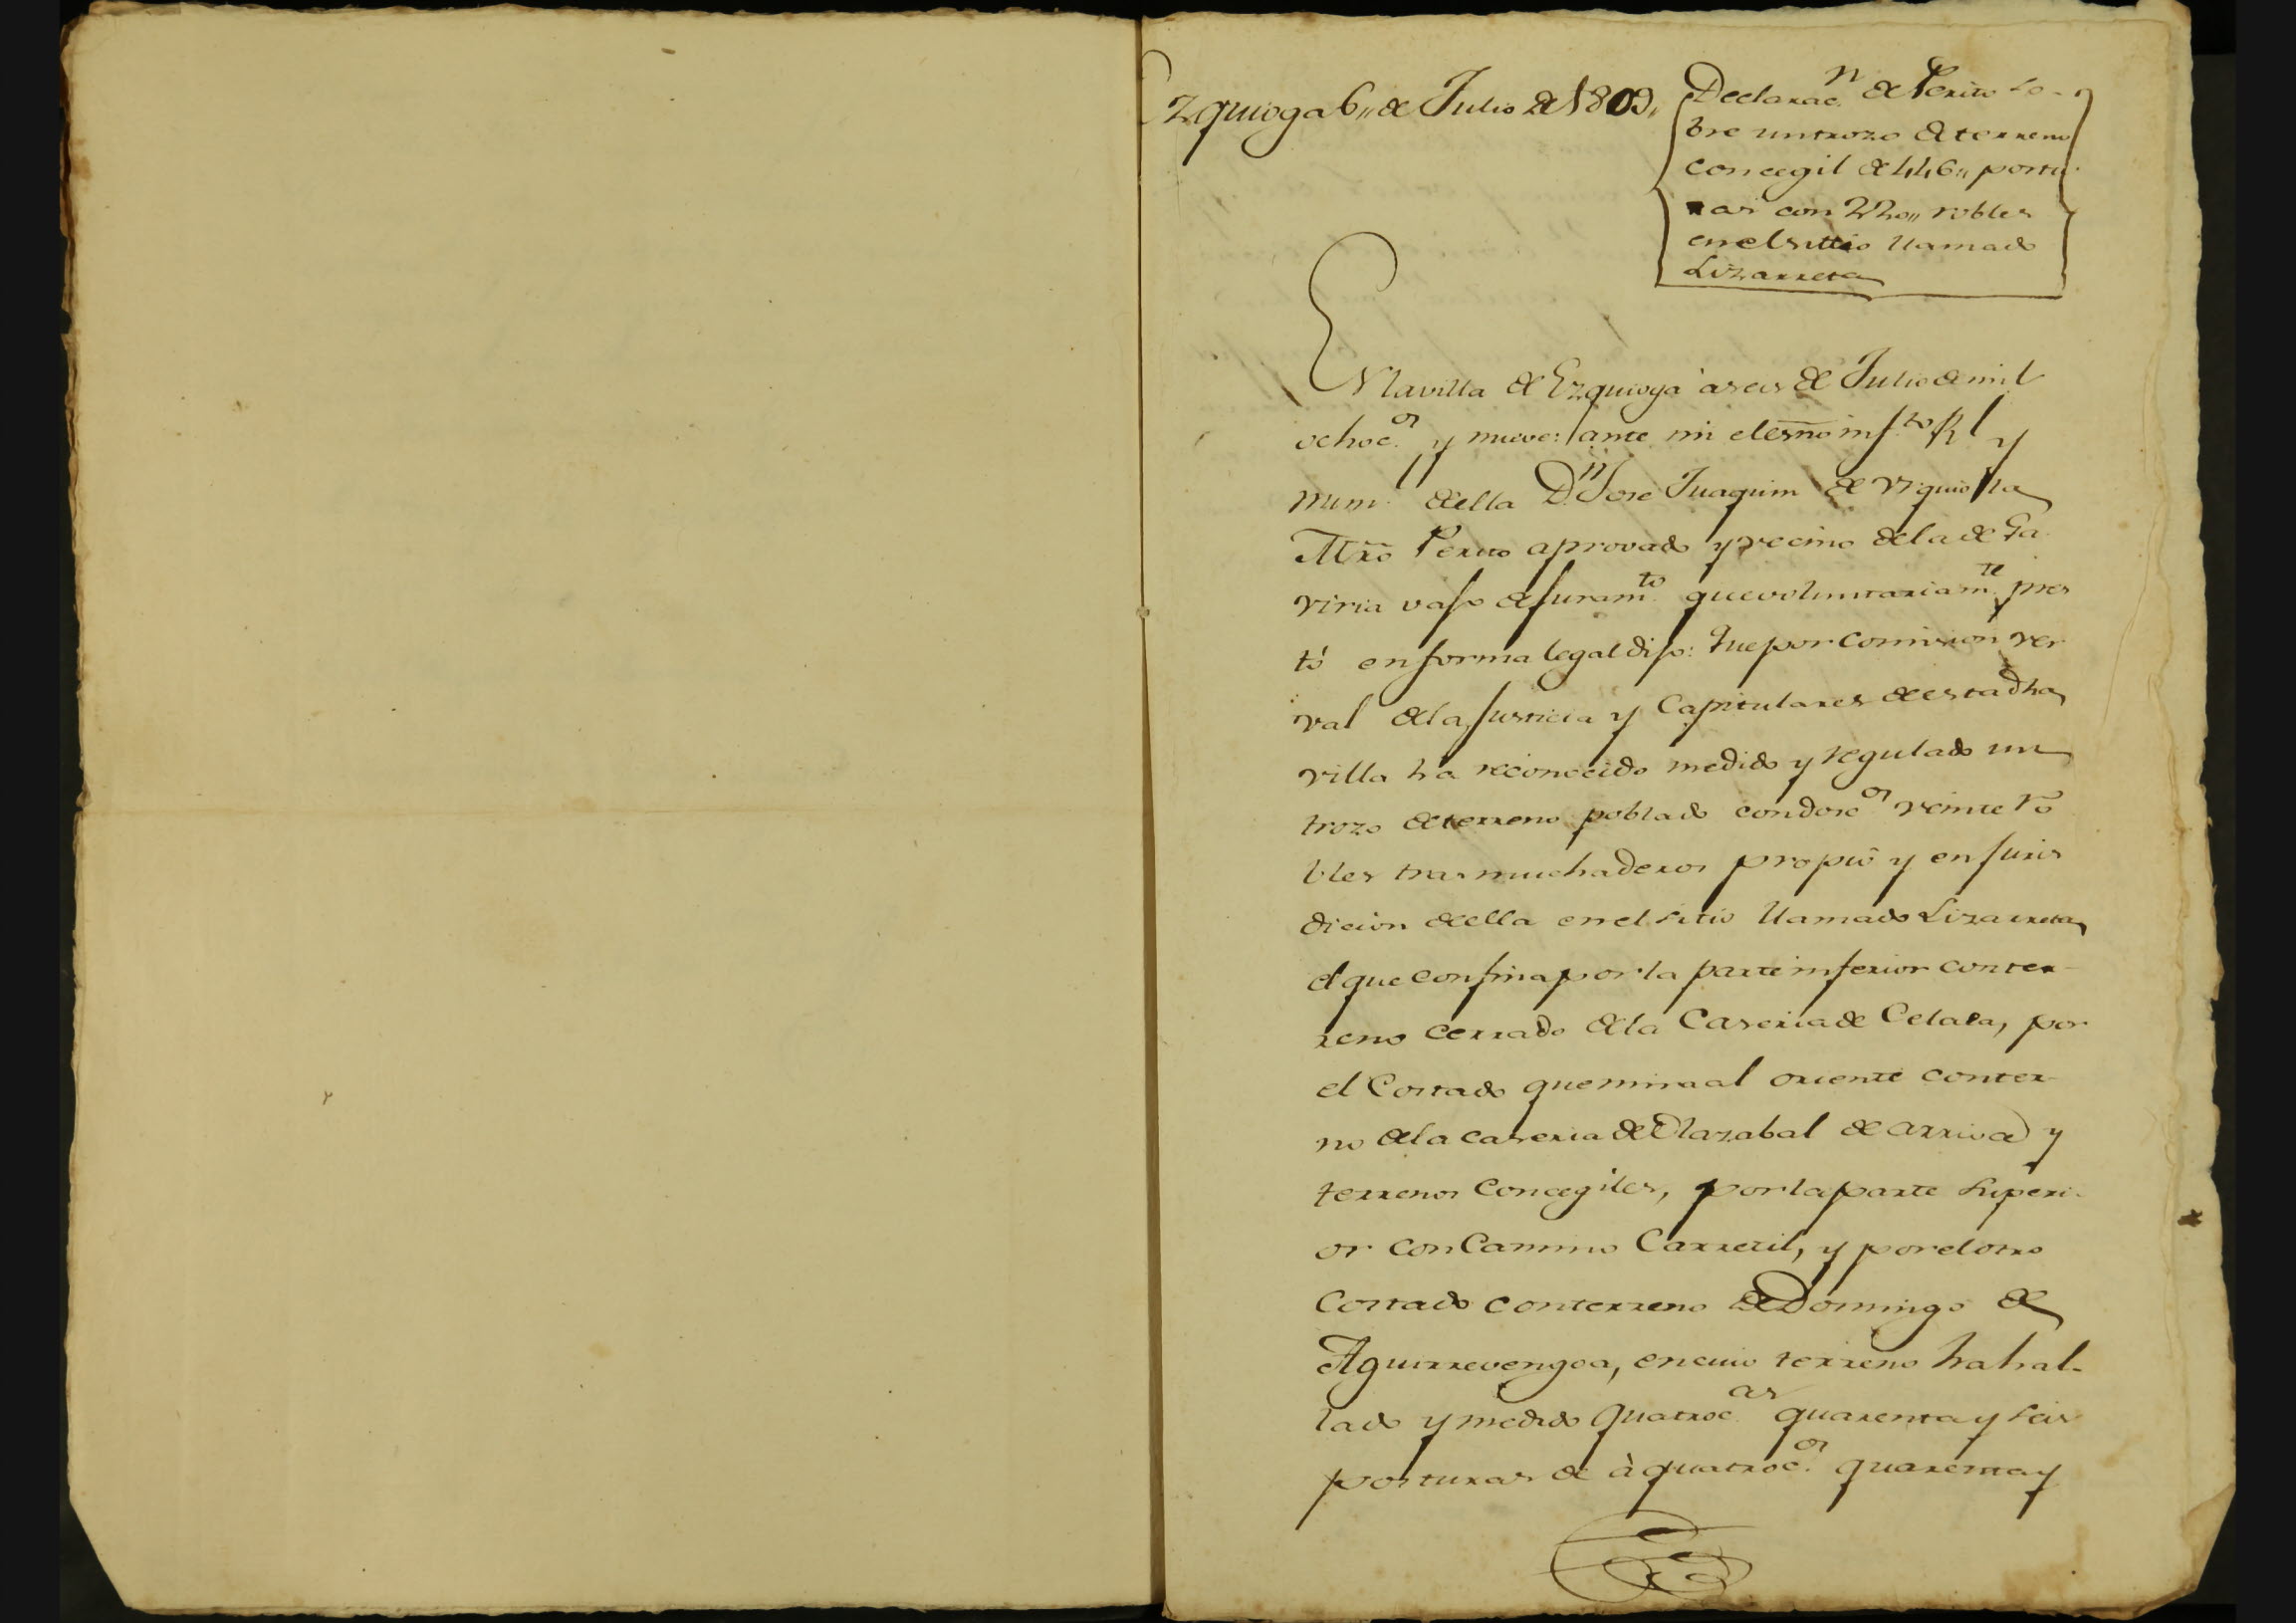 Ezquioga 6,, de Julio de 1809,,
Declarac.n de Perito so-
bre un trozo de terreno
concegil de 446,, postu-
ras con 220,, robles
en el sittio llamado
Lizarreta
En la villa de Ezquioga à seis de Julio de mil
ochoc.os y nueve: ante mi el esño inf.to Rl y
num. de ella D.n Jose Juaquin de Viquiola
Mro Perito aprovado y vecino de la de Ga
viria vajo de juram.to que voluntariam.te pres
tó en forma legal dijo: Que por comision ver
val de la Justicia y Capitulares de esta dha
villa ha reconocido medido y regulado un
trozo de terreno poblado con dosc.os veinte ro
bles trasmuchaderos propio y en juris
dicion de ella en el sitio llamado Lizarreta
el que confina por la parte inferior con ter-
reno cerrado de la Caseria de Celaea, por
el Costado que mira al oriente con ter-
no de la caseria de Olazabal de arriva y
terrenos Concegiles, por la parte Superi-
or con Camino Carretil, y por el otro
Costado con terreno de Domingo de
Aguirrevengoa, en cuio terreno ha hal-
lado y medido Quatroc.as quarenta y seis
posturas de à quatroc.os quarenta y